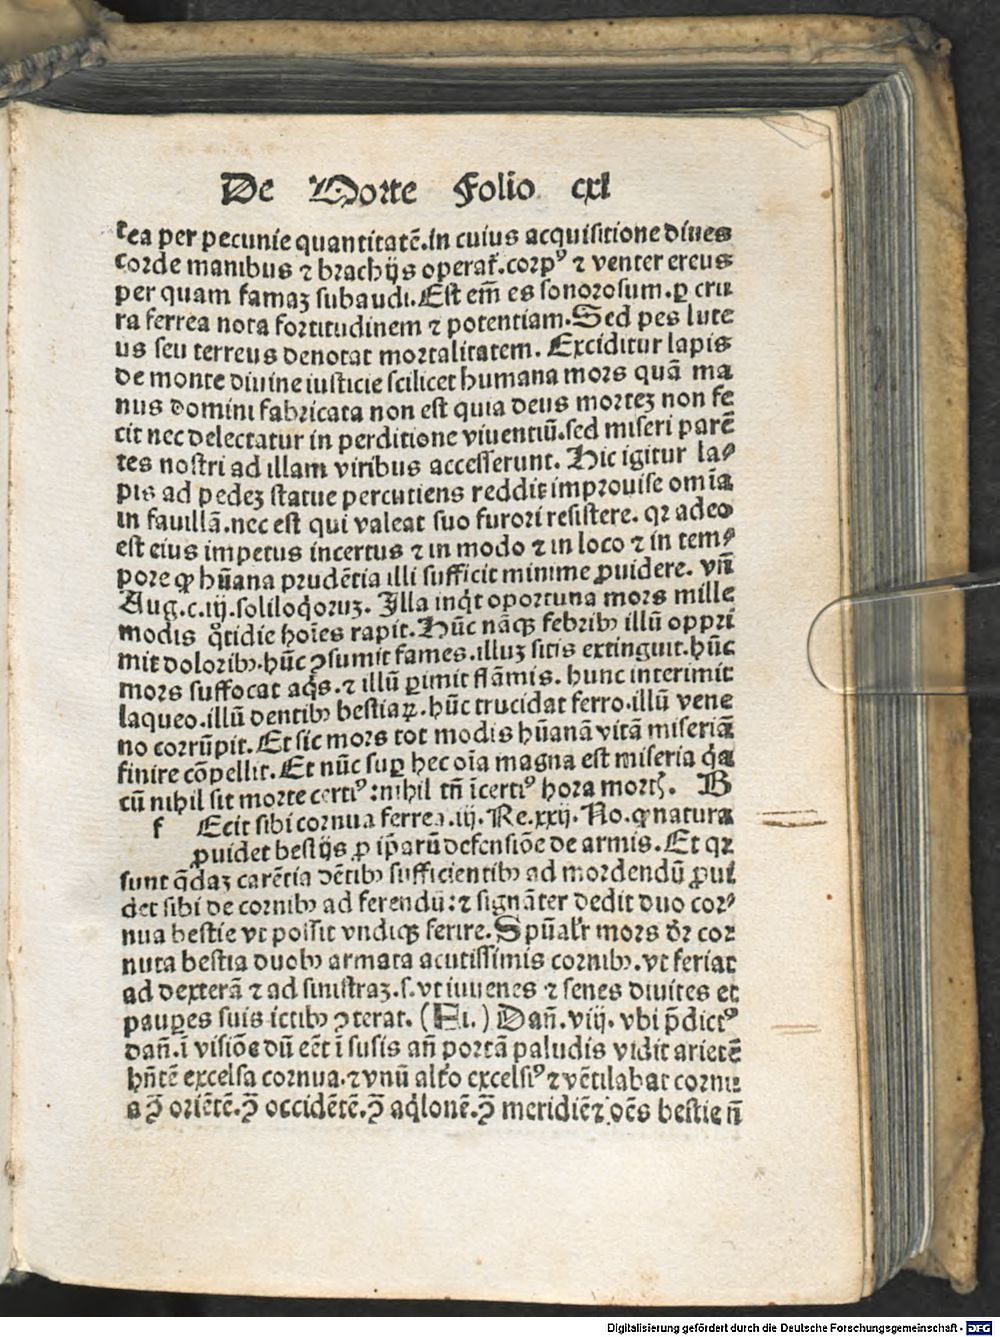 De Morte Folio cxl
tea per pecunie quantitatē.in cuius acquisitione diues
corde manibus ⁊ brachijs operaṫ.corpꝰ ⁊ venter ereus
per quam famaꝫ subaudi.Est em̄ es sonorosum.ꝑ cru
ra ferrea nota fortitudinem ⁊ potentiam.Sed pes lute
us seu terreus denotat mortalitatem. Exciditur lapis
de monte diuine iusticie scilicet humana mors quā ma
nus domini fabricata non est quia deus morteꝫ non fe
cit nec delectatur in perditione viuentiū.sed miseri parē
tes nostri ad illam viribus accesserunt. Hic igitur la⸗
pis ad pedeꝫ statue percutiens reddit improuise om̄ia
in fauillā.nec est qui valeat suo furori resistere. qꝛ adeo
est eius impetus incertus ⁊ in modo ⁊ in loco ⁊ in tem⸗
pore ꝙ hūana prudētia illi sufficit minime ꝓuidere. vn̄
Aug.c.iij.soliloqoruꝫ. Illa inqͥt oportuna mors mille
modis qͦtidie hoīes rapit.Hūc nāqꝫ febribꝰ illū oppri
mit doloribꝰ.hūc ꝯsumit fames.illuꝫ sitis extinguit.hūc
mors suffocat aqͥs.⁊ illū ꝑimit flāmis. hunc interimit
laqueo.illū dentibꝰ bestiaꝝ.hūc trucidat ferro.illū vene
no corrūpit.Et sic mors tot modis hūanā vitā miseriā
finire cōpellit.Et nūc suꝑ hec oīa magna est miseria qͥa
cū nihil sit morte certiꝰ:nihil tn̄ īcertiꝰ hora mortꝭ. B
f Ecit sibi cornua ferrea.iij.Re.xxij.No.ꝙ natura
ꝓuidet bestijs ꝓ ip̄arū defensiōe de armis.Et qꝛ
sunt q̄daꝫ carētia dētibꝰ sufficientibꝰ ad mordendū ꝓui
det sibi de cornibꝰ ad feriendū:⁊ signāter dedit duo cor⸗
nua bestie vt possit vndiqꝫ ferire.Spūalr̄ mors dr̄ cor
nuta bestia duobꝰ armata acutissimis cornibꝰ.vt feriat
ad dexterā ⁊ ad sinistraꝫ.s.vt iuuenes ⁊ senes diuites et
pauꝑes suis ictibꝰ ꝯterat. (Fi.) Dan̄.viij. vbi p̄dictꝰ
dan̄.ī visiōe dū eēt ī susis an̄ portā paludis vidit arietē
hn̄tē excelsa cornua.⁊ vnū altͦo excelsiꝰ ⁊ vētilabat cornu
a ꝯͣ oriētē.ꝯͣ occidētē.ꝯͣ aqͥlonē.ꝯͣ meridiē ⁊ oēs bestie n̄
Digitalisierung gefördert durch die Deutsche Forschungsgemeinschaft - DFG